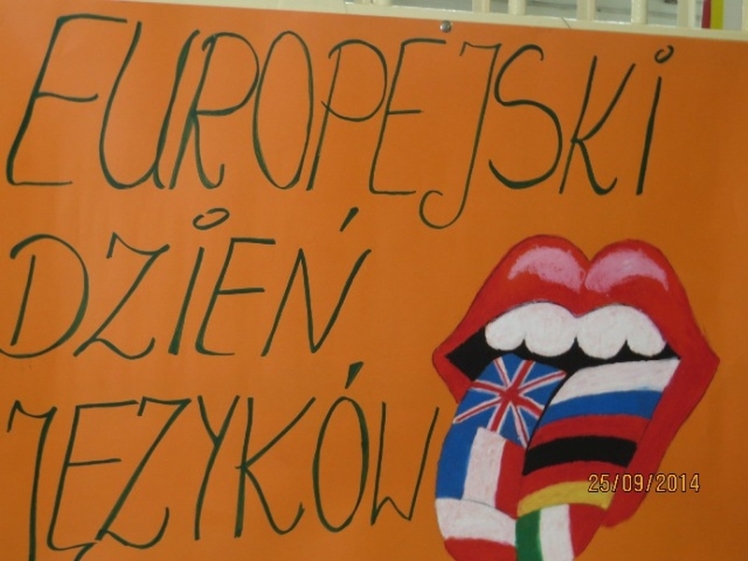 EUROPEJSKI
DZIEŃ
JĘZYKÓW
25/09/2014